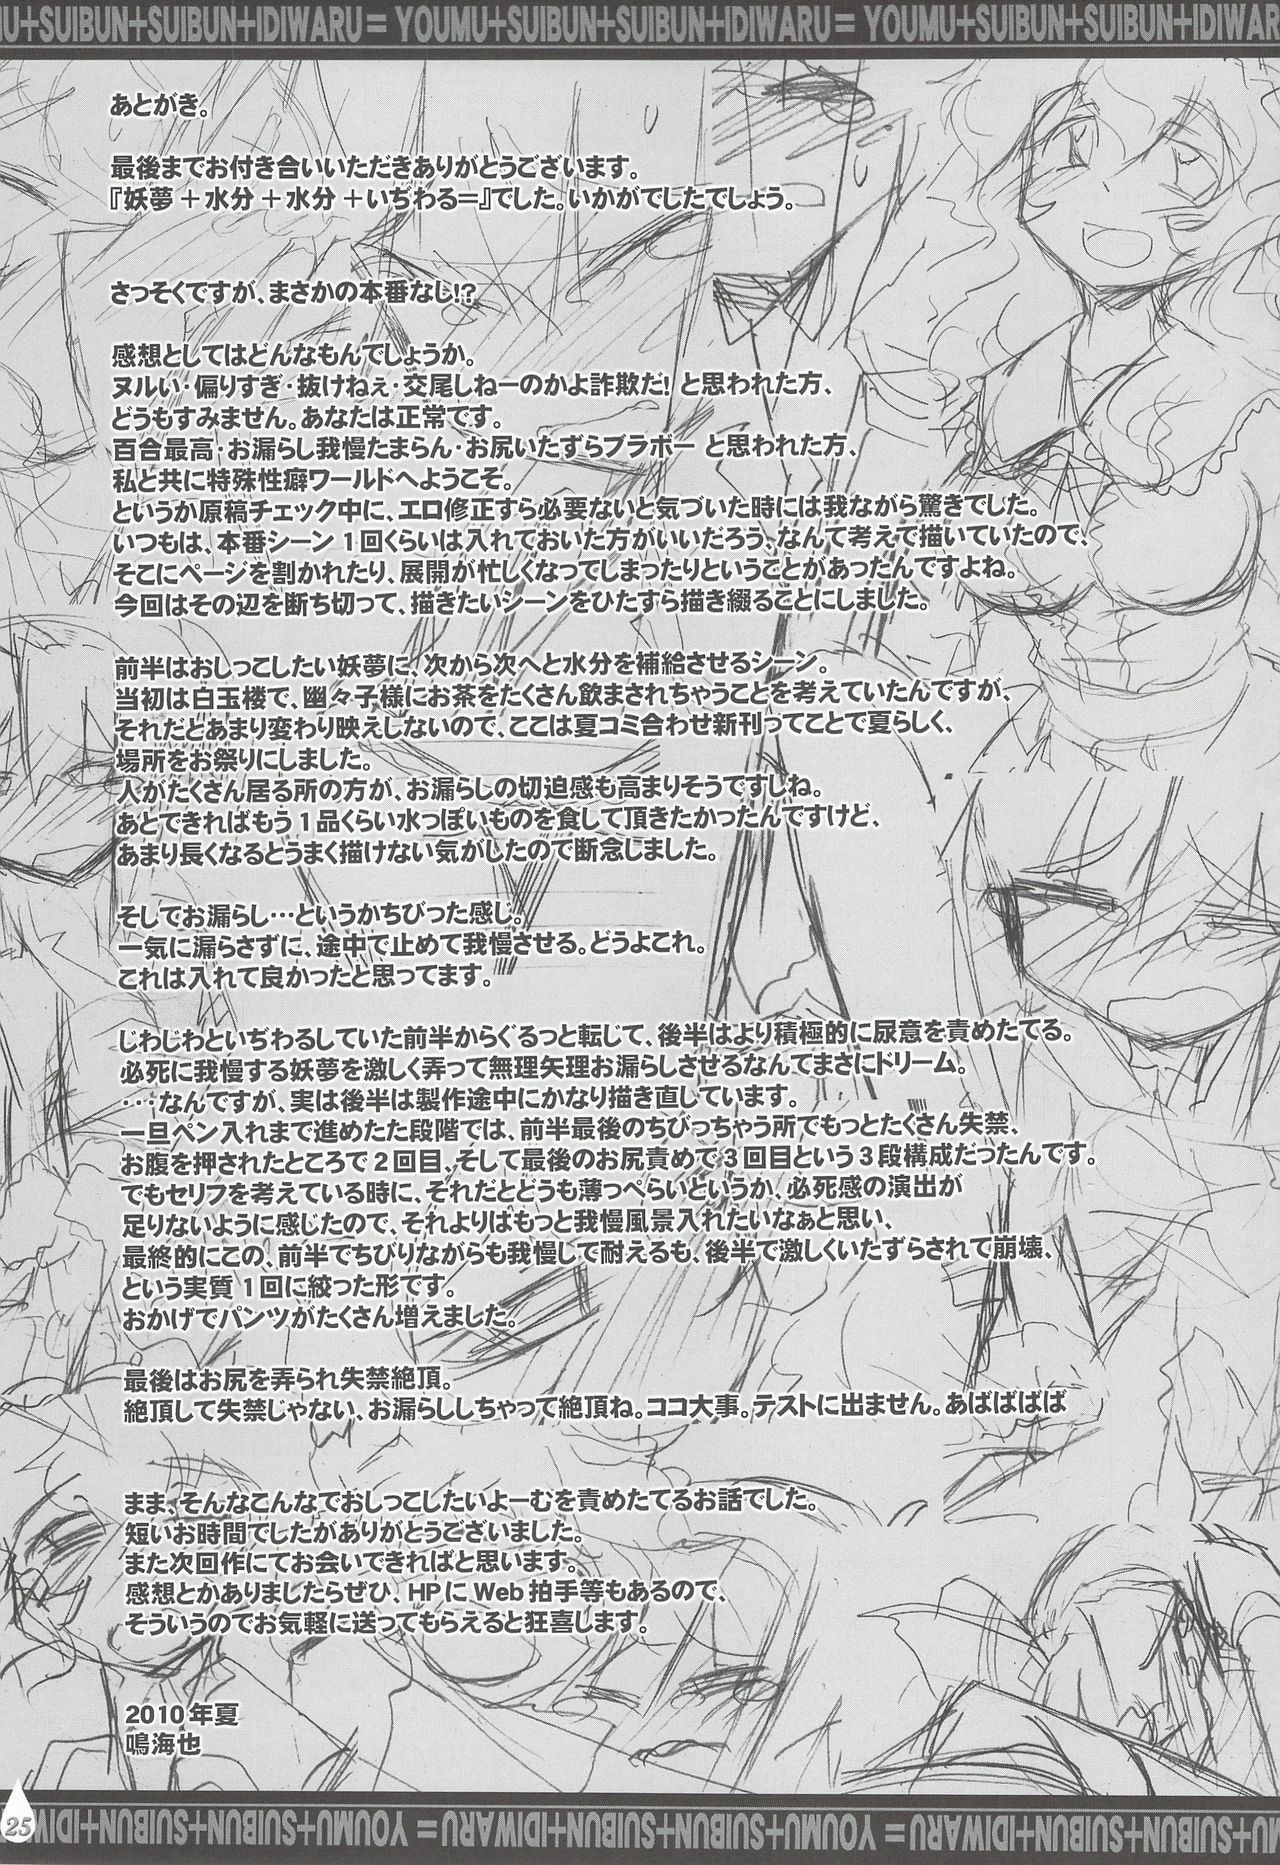 MU+SUIBUN+SUIBUN+IDIWARU= YOUMU+SUIBUN+SUIBUN+IDIWARU= YOUMU+SUIBUN+SUIBUN+IDIWARU
あとがき。
最後までお付き合いいただきありがとうございます。
『妖夢＋水分＋水分＋いぢわる＝』でした。いかがでしたでしょう。
さっそくですが、まさかの本番なし!?
感想としてはどんなもんでしょうか。
ヌルい・偏りすぎ・抜けねぇ・交尾しねーのかよ詐欺だ! と思われた方、
どうもすみません。あなたは正常です。
百合最高・お漏らし我慢たまらん・お尻いたずらブラボー と思われた方、
私と共に特殊性癖ワールドへようこそ。
というか原稿チェック中に、エロ修正すら必要ないと気づいた時には我ながら驚きでした。
いつもは、本番シーン1回くらいは入れておいた方がいいだろう、なんて考えで描いていたので、
そこにページを割かれたり、展開が忙しくなってしまったりということがあったんですよね。
今回はその辺を断ち切って、描きたいシーンをひたすら描き綴ることにしました。
前半はおしっこしたい妖夢に、次から次へと水分を補給させるシーン。
当初は白玉楼で、幽々子様にお茶をたくさん飲まされちゃうことを考えていたんですが、
それだとあまり変わり映えしないので、ここは夏コミ合わせ新刊ってことで夏らしく、
場所をお祭りにしました。
人がたくさん居る所の方が、お漏らしの切迫感も高まりそうですしね。
あとできればもう1品くらい水っぽいものを食して頂きたかったんですけど、
あまり長くなるとうまく描けない気がしたので断念しました。
そしてお漏らし…というかちびった感じ。
一気に漏らさずに、途中で止めて我慢させる。どうよこれ。
これは入れて良かったと思ってます。
じわじわといぢわるしていた前半からぐるっと転じて、後半はより積極的に尿意を責めたてる。
必死に我慢する妖夢を激しく弄って無理矢理お漏らしさせるなんてまさにドリーム。
‥‥なんですが、実は後半は製作途中にかなり描き直しています。
一旦ペン入れまで進めたた段階では、前半最後のちびっちゃう所でもっとたくさん失禁、
お腹を押されたところで2回目、そして最後のお尻責めで3回目という3段構成だったんです。
でもセリフを考えている時に、それだとどうも薄っぺらいというか、必死感の演出が
足りないように感じたので、それよりはもっと我慢風景入れたいなぁと思い、
最終的にこの、前半でちびりながらも我慢して耐えるも、後半で激しくいたずらされて崩壊、
という実質1回に絞った形です。
おかげでパンツがたくさん増えました。
最後はお尻を弄られ失禁絶頂。
絶頂して失禁じゃない、お漏らししちゃって絶頂ね。ココ大事。テストに出ません。あばばばばば
まま、そんなこんなでおしっこしたいよーむを責めたてるお話でした。
短いお時間でしたがありがとうございました。
また次回作にてお会いできればと思います。
感想とかありましたらぜひ、HPにWeb拍手等もあるので、
そういうのでお気軽に送ってもらえると狂喜します。
2010年夏
鳴海也
25
MU+SUIBUN+SUIBUN+IDIWARU= YOUMU+SUIBUN+SUIBUN+IDIWARU= YOUMU+SUIBUN+SUIBUN+IDIW